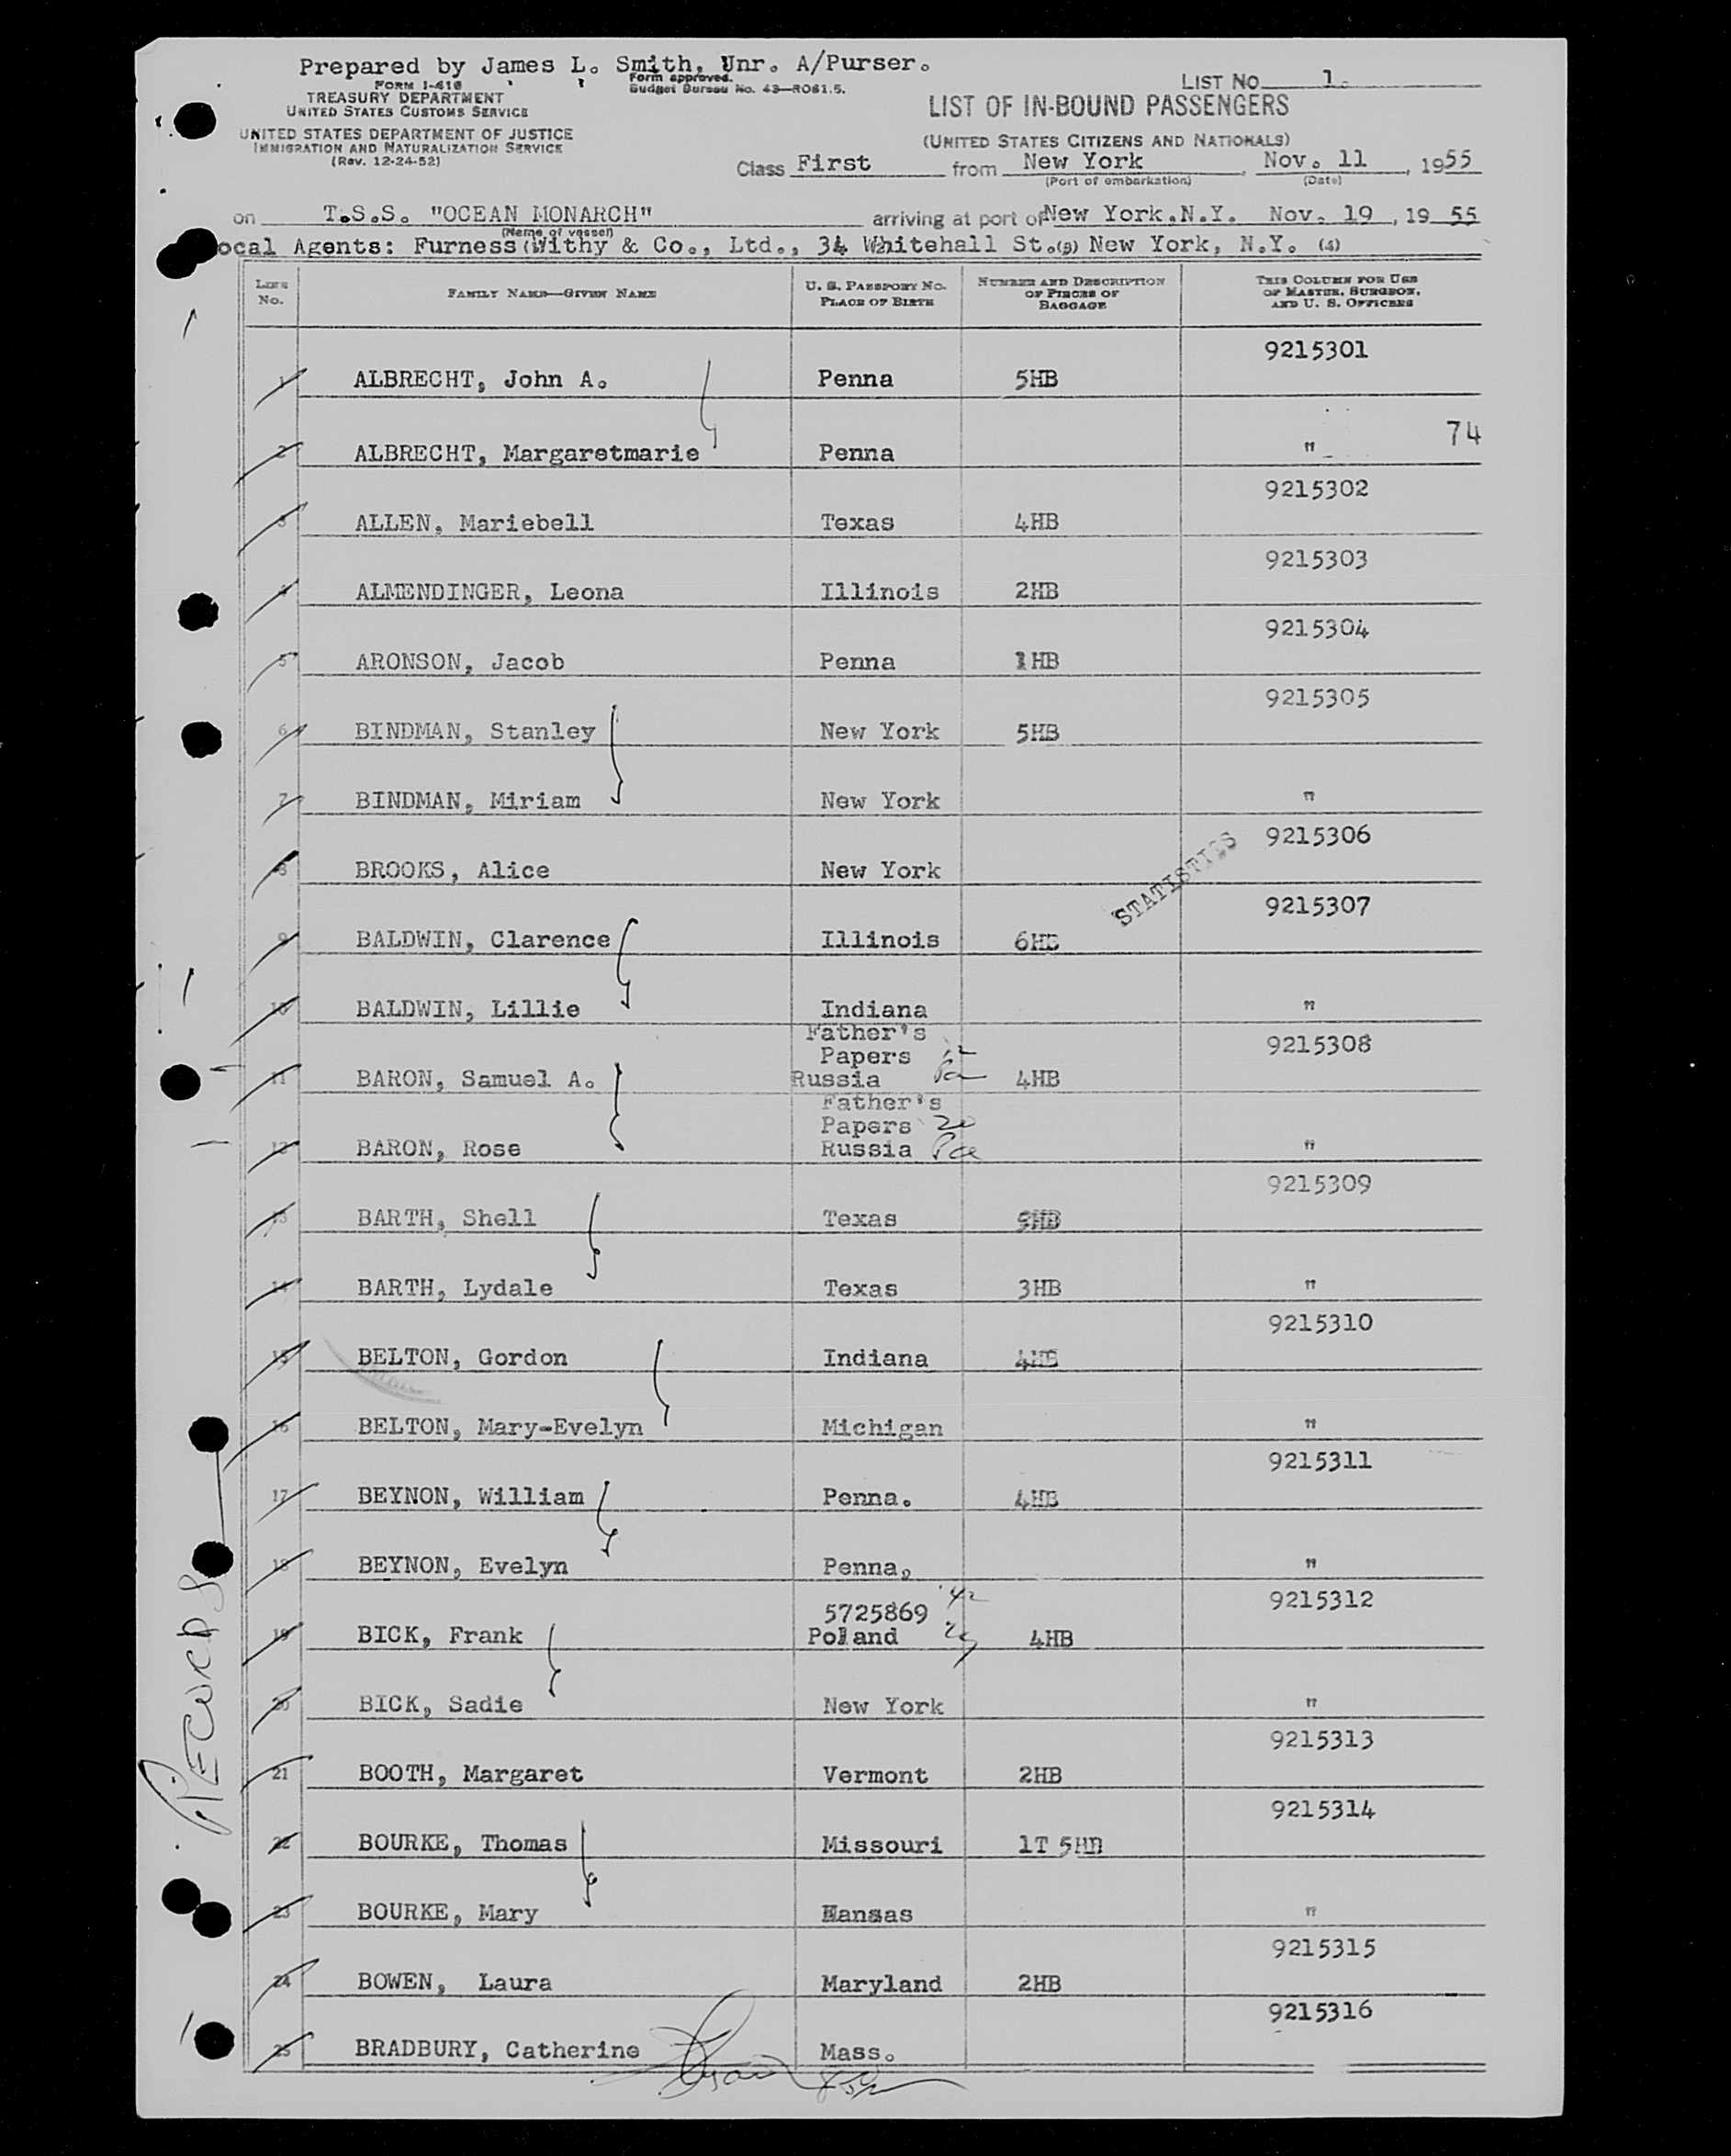 Prepared by James L. Smith, Unr. A/Purser.
Form approved.
Budget Bureau No. 43—R081.5.
FORM I-418
TREASURY DEPARTMENT
UNITED STATES CUSTOMS SERVICE
UNITED STATES DEPARTMENT OF JUSTICE
IMMIGRATION AND NATURALIZATION SERVICE
(Rev. 12-24-52)
LIST NO. 1.
LIST OF IN-BOUND PASSENGERS
(UNITED STATES CITIZENS AND NATIONALS)
Class First from New York, Nov. 11, 1955
(Port of embarkation) (Date)
on T.S.S. "OCEAN MONARCH" arriving at port of New York.N.Y. Nov. 19, 19 55
(Name of vessel)
ocal Agents: Furness Withy & Co., Ltd., 34 Whitehall St.(3) New York, N.Y. (4)
LINE No. FAMILY NAME—GIVEN NAME U. S. PASSPORT NO. PLACE OF BIRTH NUMBER AND DESCRIPTION OF PIECES OF BAGGAGE THIS COLUMN FOR USE OF MASTER, SURGEON, AND U. S. OFFICERS
9215301
1 ALBRECHT, John A. Penna 5HB
74
2 ALBRECHT, Margaretmarie Penna "
9215302
3 ALLEN, Mariebell Texas 4HB
9215303
4 ALMENDINGER, Leona Illinois 2HB
9215304
5 ARONSON, Jacob Penna 1HB
9215305
6 BINDMAN, Stanley New York 5HB
7 BINDMAN, Miriam New York "
9215306
8 BROOKS, Alice New York
STATISTICS
9215307
9 BALDWIN, Clarence Illinois 6HB
10 BALDWIN, Lillie Indiana "
Father's
Papers 9215308
11 BARON, Samuel A. Russia Pa 4HB
Father's
Papers 20
12 BARON, Rose Russia Pa "
9215309
13 BARTH, Shell Texas HB
14 BARTH, Lydale Texas 3HB "
9215310
15 BELTON, Gordon Indiana 4HB
16 BELTON, Mary-Evelyn Michigan "
9215311
17 BEYNON, William Penna. 4HB
18 BEYNON, Evelyn Penna, "
5725869 '42 9215312
19 BICK, Frank Poland 4HB
20 BICK, Sadie New York "
9215313
21 BOOTH, Margaret Vermont 2HB
9215314
22 BOURKE, Thomas Missouri 1T 5HB
23 BOURKE, Mary Kansas "
9215315
24 BOWEN, Laura Maryland 2HB
9215316
25 BRADBURY, Catherine Mass.